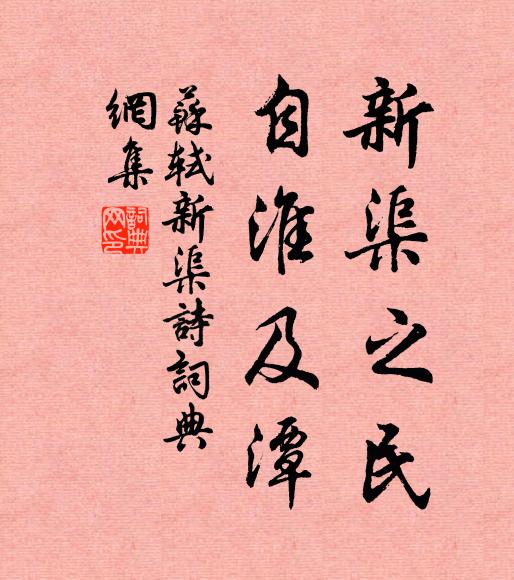 新渠之民
自淮及潭
蘇軾新渠詩詞典
網集
詞典
网印